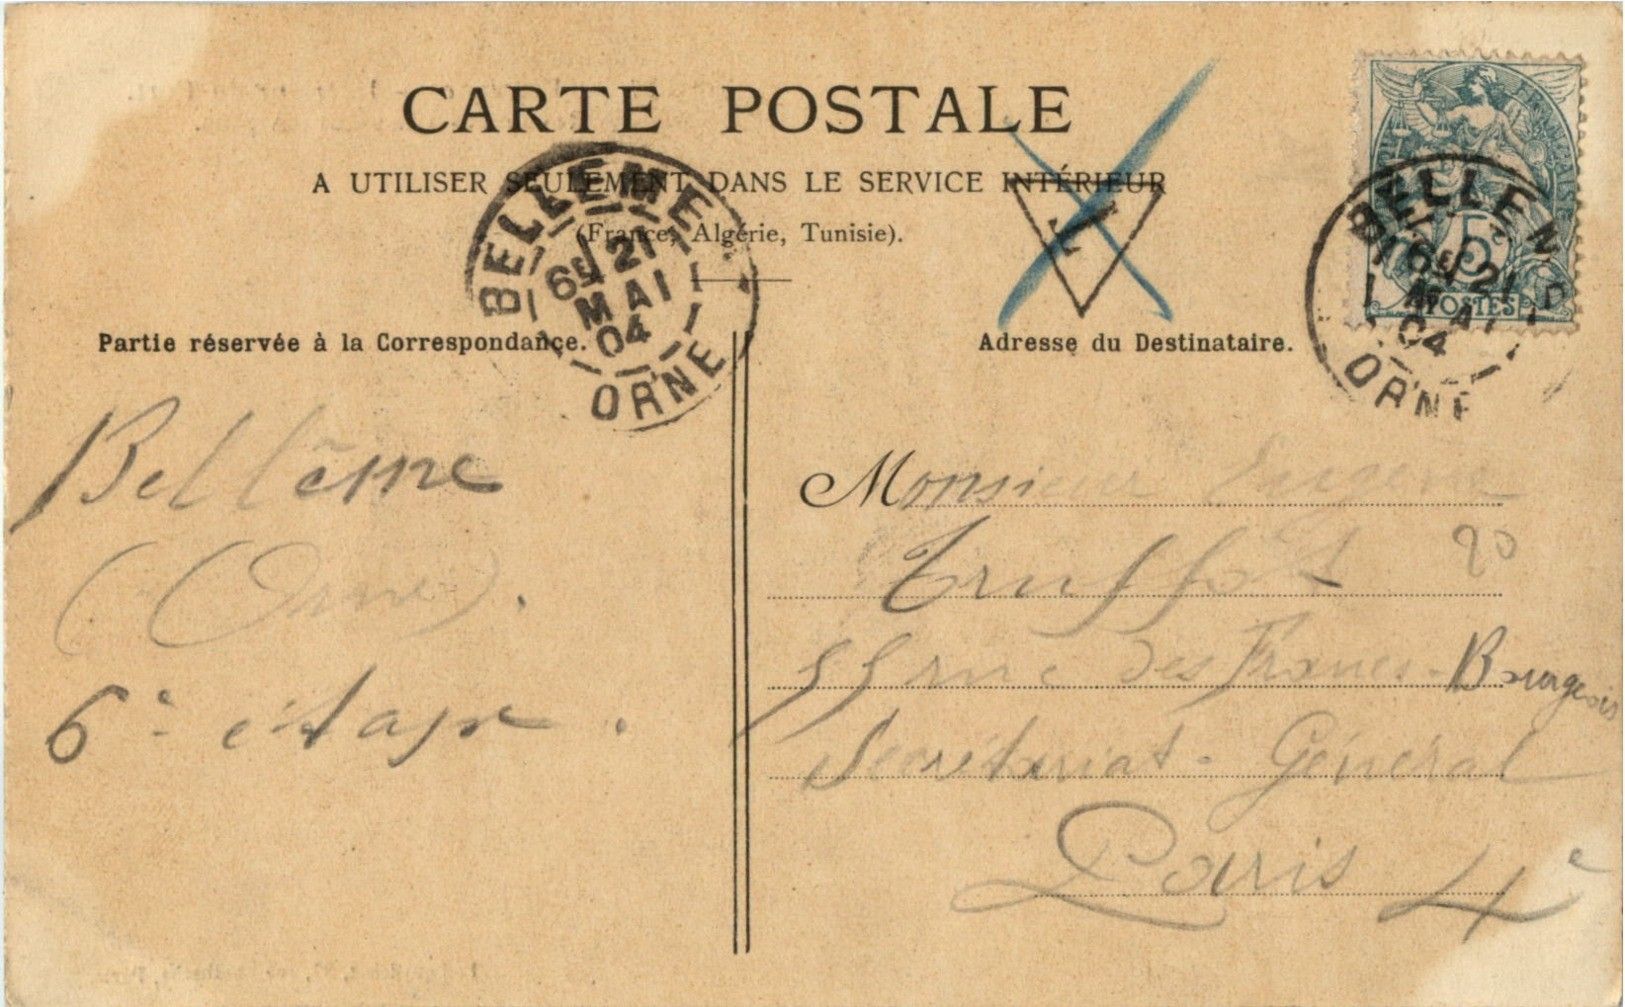 CARTE POSTALE
A UTILISER SEULEMENT DANS LE SERVICE INTÉRIEUR
(France, Algérie, Tunisie).
BELLEME
6E 21
MAI
04
ORNE
T
5c
POSTES
BELLEME
6E 21
MAI
04
ORNE
Partie réservée à la Correspondance.
Bellême
(Orne).
6e étape.
Adresse du Destinataire.
Monsieur Eugène
Truffot 20
55 rue des Francs-Bourgeois
Secrétariat-Général
Paris 4e